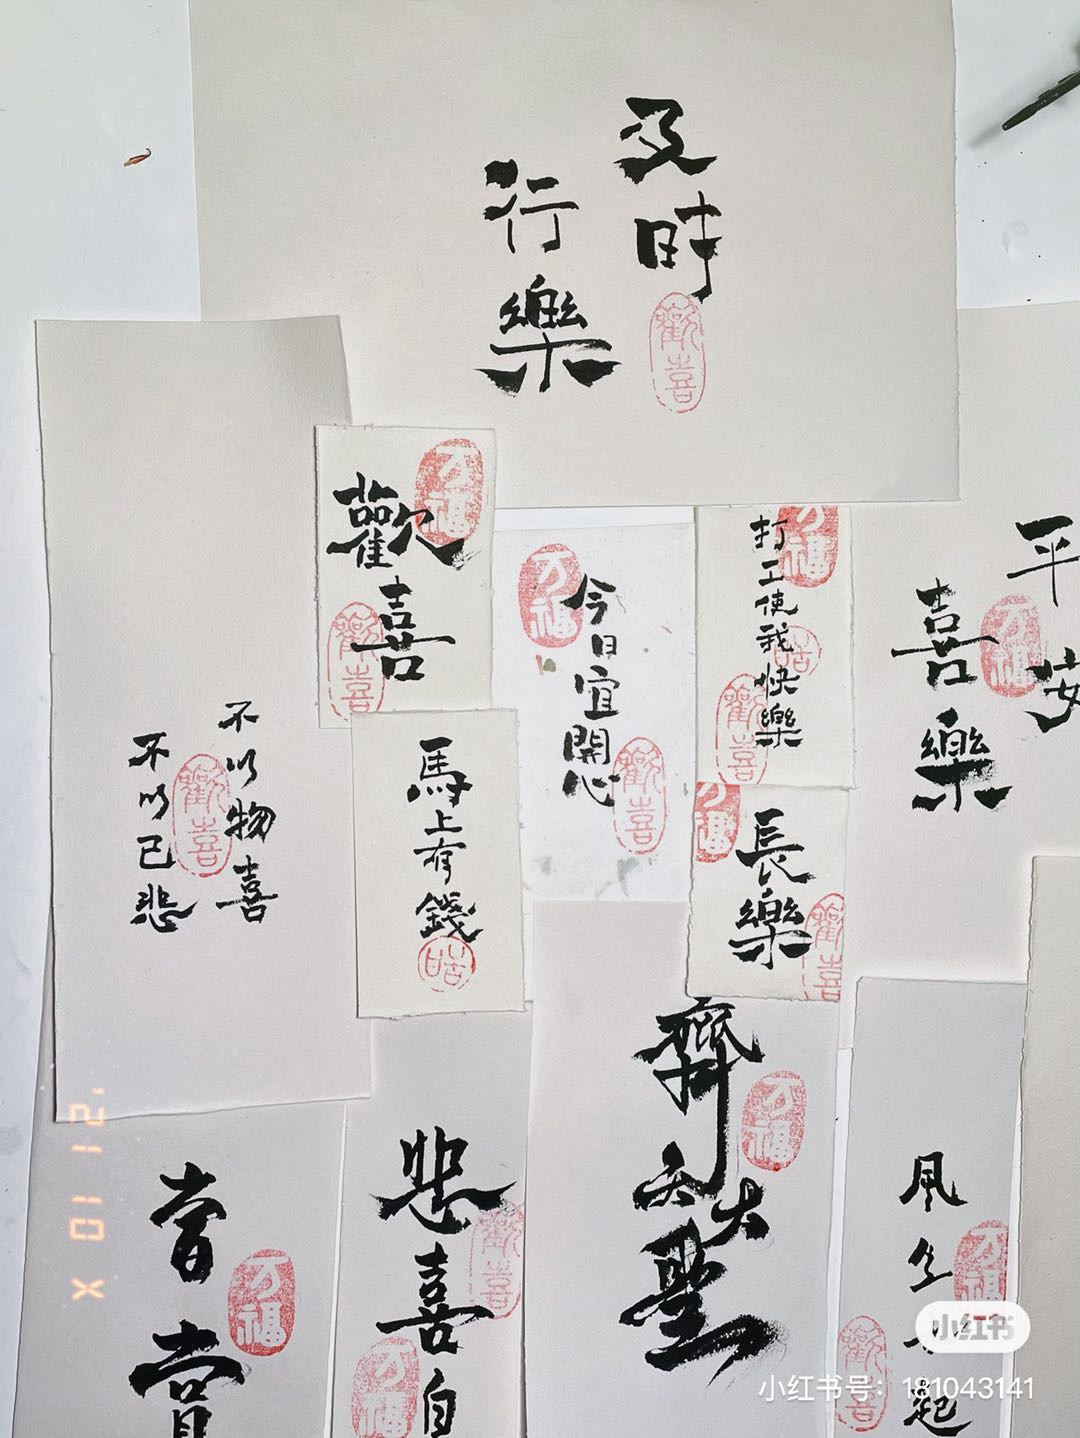 及時
行樂
歡喜
萬福
歡喜
歡喜
万福
今日宜開心
万福
歡喜
打工使我快樂
万福
歡喜
平安
喜樂
万福
不以物喜
不以己悲
歡喜
馬上有錢
長樂
万福
歡喜
齊天大聖
万福
悲喜自
歡喜
万福
常
万福
風生
起
万福
歡喜
小红书
小红书号：181043141